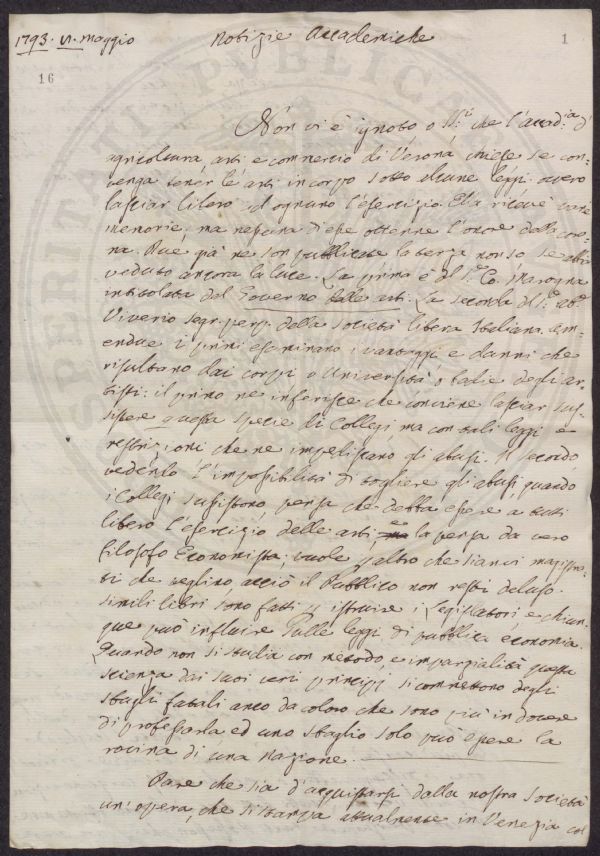 1793. VI. Maggio Notizie Accademiche 1
16
Non vi è ignoto o SS.ri che l'accad.ia d'
agricoltura, arti e commercio di Verona chiese se con=
venga tener le arti in corpo sotto alcune leggi, ovvero
lasciar libero ad ognuno l'esercizio. Ella ricevè varie
memorie, ma nessuna di esse ottenne l'onore della coro=
na. Due già ne son pubblicate la terza non so se abbia
veduto ancora la luce. La prima è del Sig. Co. Marogna
intitolata del Governo delle arti. La seconda del Sig. ab.
Viverio segr. perp. della Società libera Italiana. Am=
endue i primi esaminano i vantaggi e danni che
risultano dai corpi o Università o badie degli ar=
tisti: il primo ne inferisce che conviene lasciar sus=
sistere questa specie di Collegi ma con tali leggi e
restrizioni che ne impediscano gli abusi. Il secondo
vedendo l'impossibilità di togliere gli abusi quando
i Collegi sussistono, pensa che debba essere a tutti
libero l'esercizio delle arti e la pensa da vero
filosofo Economista; vuole p. altro che sianci magistra=
ti che veglino, acciò il Pubblico non resti deluso.
Simili libri sono fatti p. istruire i Legislatori, e chiun=
que può influire sulle leggi di pubblica economia.
Quando non si studia con metodo, e imparzialità questa
scienza dai suoi veri principj si commettono degli
sbagli fatali anco da coloro che sono più in dovere
di professarla ed uno sbaglio solo può essere la
rovina di una Nazione.
Pare che sia d'acquistarsi dalla nostra Società
un'opera, che si stampa attualmente in Venezia col